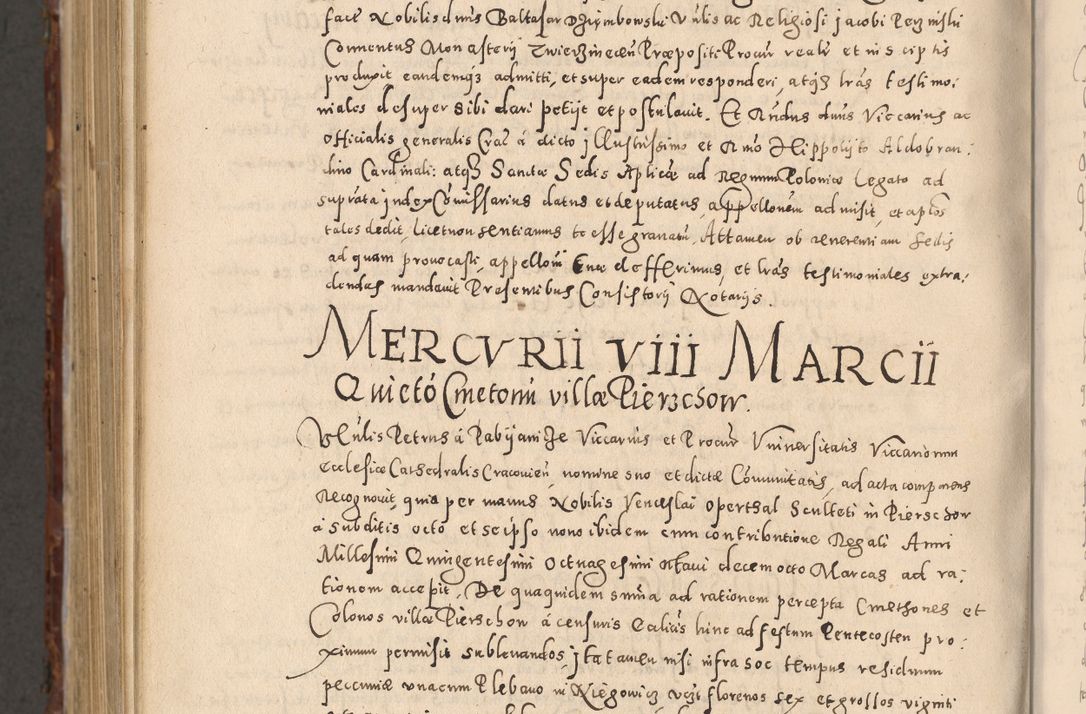 face Nobilis dnus Baltasar Dziymbowski Vnlis ac Religiosi jacobi Pewinski
Conuentus Monasterij Zwierzinecen Præpositi Procur reali et in scriptis
produxit eandemqȝ admitti, et super eadem responderi, atqȝ lras testimo:
niales desuper sibi dari petijt et postulauit. Et Rndus dnus Viccarius ac
officialis generalis Crac á dicto jllustrissimo et Rmo Hippolyto Aldobran:
dino Cardinali: atqȝ Sanctæ Sedis Aplicæ ad Regnum Poloniæ Legato ad
suprata index Comissarius datus et deputatus, appellonem admisit, et aplos
tales dedit, licet non sentiamus te esse grauatu, Attamen ob reuerentiam Sedis
ad quam prouocasti, appelloni tuæ defferimus, et lras testimoniales extra:
dendas mandauit Presentibus Consistorij Notarijs.
MERCVRII VIII MARCII
Quietó Cmetonu villæ Pierzchow.
VEnlis Petrus á Pabijanize Viccarius et Procur Vniuersitatis Viccariorum
Ecclesiæ Cathedralis Cracouien, nomine suo et dictæ Comunitatis, ad acta comparens
Recognouit, quia per manus Nobilis Venceslai Operthal Sculteti in Pierschow
á subditis octo et se ipso nono ibidem cum contributione Regali Anni
Millesimi Quingentesimi octuagesimi octaui decem octo Marcas ad ra:
tionem accepit, De qua quidem suma ad rationem percepta Cmethones et
Colonos villæ Pierschow á censuris Eccliis hinc ad festum Pentecosten pro:
ximum permisit subleuandos, jta tamen nisi infra hoc tempus residuum
pecuniæ vnacum Plebano in Niegowicz vczt florenos sex et grossos viginti